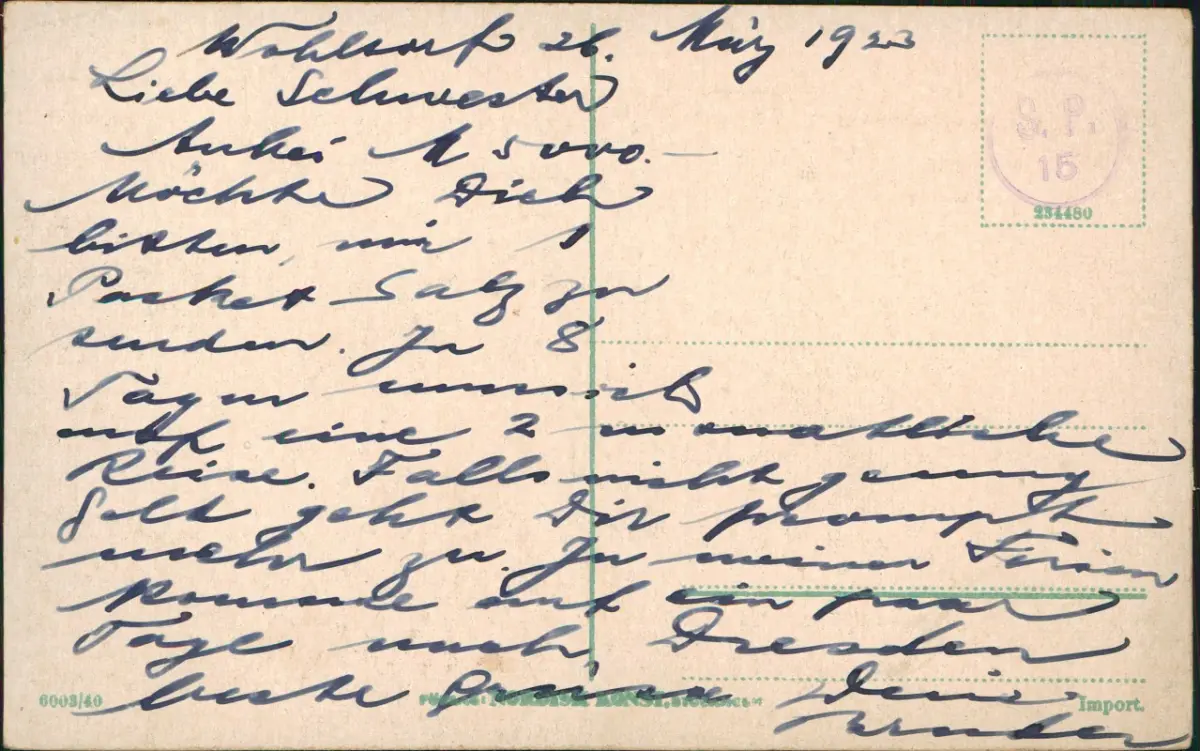 Wohldorf 26. März 1923
Liebe Schwester
Anbei M 5000.—
Möchte Dich
bitten, mir 1
Packet Salz zu
senden. In 8
Tagen muss ich
auf eine 2 monatliche
Reise. Falls nicht genug
Geld geht Dir prompt
mehr zu. In meinen Ferien
komme auf ein paar
Tage nach Dresden
beste Grüsse Dein
Bruder
S. P.
15
234480
6003/40
NORDISK KUNST,
Import.